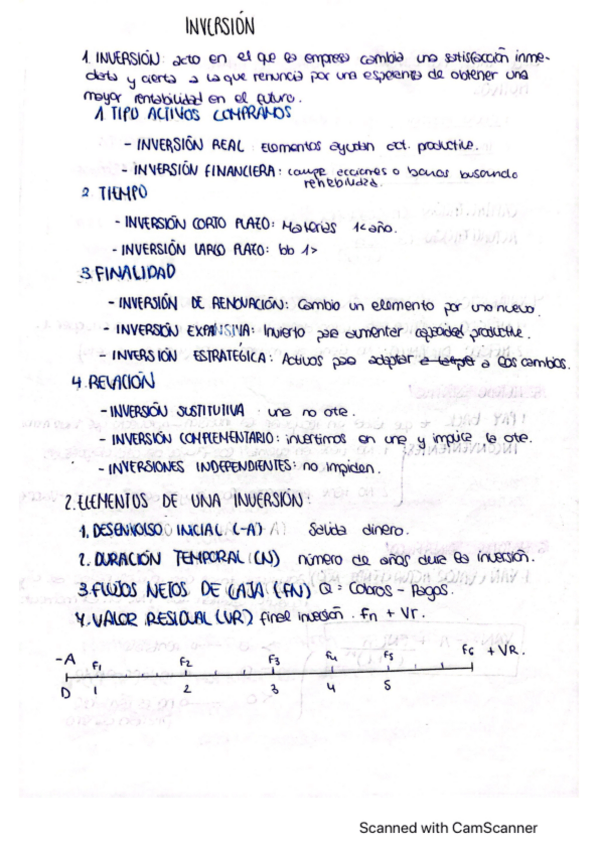 INVERSIÓN
1. INVERSIÓN: acto en el que la empresa cambia una satisfacción inme-
diata y cierta a la que renuncia por una esperanza de obtener una
mayor rentabilidad en el futuro.
1. TIPO ACTIVOS COMPRAMOS
- INVERSIÓN REAL Elementos ayudan act. productiva.
- INVERSIÓN FINANCIERA: compra acciones o bonos buscando
rentabilidad.
2. TIEMPO
- INVERSIÓN CORTO PLAZO: Materias 1< año.
- INVERSIÓN LARGO PLAZO: 1>
3. FINALIDAD
- INVERSIÓN DE RENOVACIÓN: Cambio un elemento por uno nuevo.
- INVERSIÓN EXPANSIVA: Invierto para aumentar capacidad productiva.
- INVERSIÓN ESTRATÉGICA: Activos para adaptar a los cambios.
4. RELACIÓN
- INVERSIÓN SUSTITUTIVA una no otra.
- INVERSIÓN COMPLEMENTARIO: invertimos en una y implica la otra.
- INVERSIONES INDEPENDIENTES: no impiden.
2. ELEMENTOS DE UNA INVERSIÓN:
1. DESEMBOLSO INICIAL (-A) Salida dinero.
2. DURACIÓN TEMPORAL (N) número de años dura la inversión.
3. FLUJOS NETOS DE CAJA (FN) Q = Cobros - Pagos.
4. VALOR RESIDUAL (VR) final inversión. Fn + Vr.
-A F1 F2 F3 F4 F5 F6 + VR.
0 1 2 3 4 5
Scanned with CamScanner